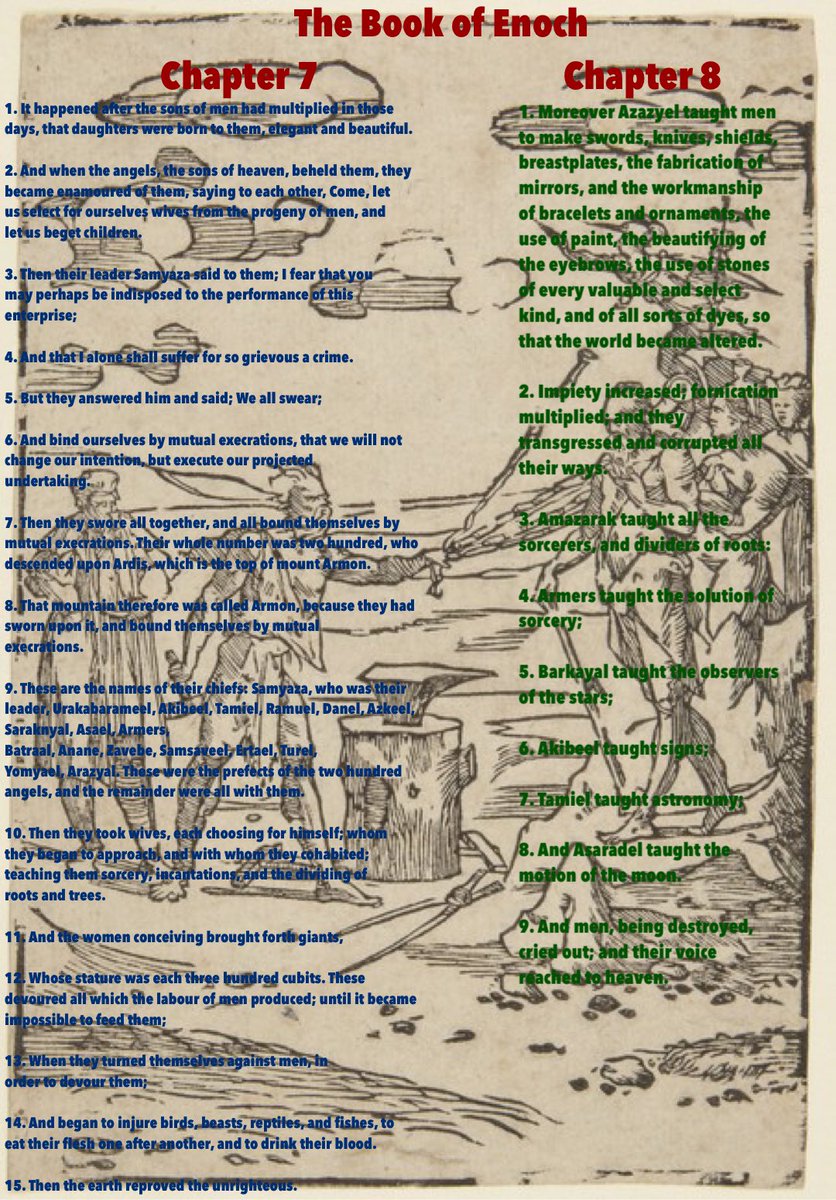 The Book of Enoch
Chapter 7
1. It happened after the sons of men had multiplied in those
days, that daughters were born to them, elegant and beautiful.
2. And when the angels, the sons of heaven, beheld them, they
became enamoured of them, saying to each other, Come, let
us select for ourselves wives from the progeny of men, and
let us beget children.
3. Then their leader Samyaza said to them; I fear that you
may perhaps be indisposed to the performance of this
enterprise;
4. And that I alone shall suffer for so grievous a crime.
5. But they answered him and said; We all swear;
6. And bind ourselves by mutual execrations, that we will not
change our intention, but execute our projected
undertaking.
7. Then they swore all together, and all bound themselves by
mutual execrations. Their whole number was two hundred, who
descended upon Ardis, which is the top of mount Armon.
8. That mountain therefore was called Armon, because they had
sworn upon it, and bound themselves by mutual
execrations.
9. These are the names of their chiefs: Samyaza, who was their
leader, Urakabarameel, Akibeel, Tamiel, Ramuel, Danel, Azkeel,
Saraknyal, Asael, Armers,
Batraal, Anane, Zavebe, Samsaveel, Ertael, Turel,
Yomyael, Arazyal. These were the prefects of the two hundred
angels, and the remainder were all with them.
10. Then they took wives, each choosing for himself; whom
they began to approach, and with whom they cohabited;
teaching them sorcery, incantations, and the dividing of
roots and trees.
11. And the women conceiving brought forth giants,
12. Whose stature was each three hundred cubits. These
devoured all which the labour of men produced; until it became
impossible to feed them;
13. When they turned themselves against men, in
order to devour them;
14. And began to injure birds, beasts, reptiles, and fishes, to
eat their flesh one after another, and to drink their blood.
15. Then the earth reproved the unrighteous.
Chapter 8
1. Moreover Azazyel taught men
to make swords, knives, shields,
breastplates, the fabrication of
mirrors, and the workmanship
of bracelets and ornaments, the
use of paint, the beautifying of
the eyebrows, the use of stones
of every valuable and select
kind, and of all sorts of dyes, so
that the world became altered.
2. Impiety increased; fornication
multiplied; and they
transgressed and corrupted all
their ways.
3. Amazarak taught all the
sorcerers, and dividers of roots:
4. Armers taught the solution of
sorcery;
5. Barkayal taught the observers
of the stars;
6. Akibeel taught signs;
7. Tamiel taught astronomy;
8. And Asaradel taught the
motion of the moon.
9. And men, being destroyed,
cried out; and their voice
reached to heaven.